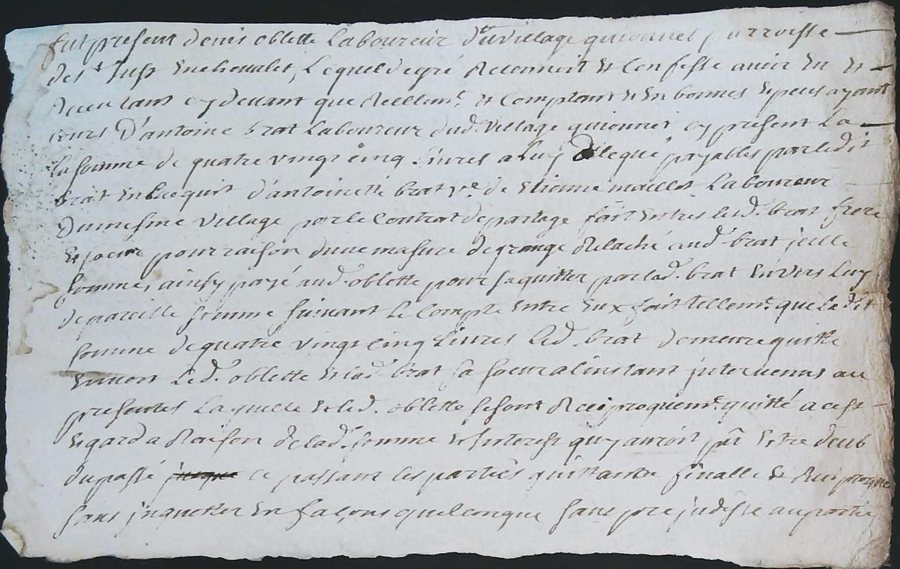 fut present denis oblette Laboureur du village quionnet parroisse
de St Just En chevalet, Lequel de gré Reconneit Et Confesse avoir Eu Et
Receu tant cy devant que Reellemt. Et Comptant Et En bonnes Especes ayant
cours D'antoine brat Laboureur dud. village quionnet cy present La
la somme de quatre vingt cinq Livres a Luy payables par ledit
brat En lacquit d'antoinette brat ve. de Etienne maillot Laboureur
Du mesme village par le Contrat de partage fait Entre lesd. brat frere
Et soeur pour raison d'une masure de grange Relaché aud. brat jcelle
somme, ainsy payé aud. oblette pour sacquitter par lad. brat Envers Luy
de pareille somme suivant Le Compte Entre Eux fait tellemt. que ladit
somme de quatre vingt cinq Livres Led. brat demeure quitte
Envers Led. oblette Et lad. brat sa soeur a linstant jntervenus au
presentes Laquelle Et led. oblette se sont Reciproquemt. quitté a cest
Egard a Raison de lad. somme Et Interest quy auroit pû Estre deub
du passé ce passant les parties quittance finalle Et Reciproque
sans jnquetter En façons quelconque sans prejudisse au